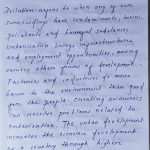 Pollution occurs to when any of our
surroundings have contaminants, toxins
pollutants and harmful substances.
Urbanization brings infrastructures
and employment opportunities, among
various other forms of development.
Factories and industries do more
harm to the environment than good
for the people. Creating awareness
can resolve problems related to
urbanization. The urban development
increases the economic development
of a country through higher